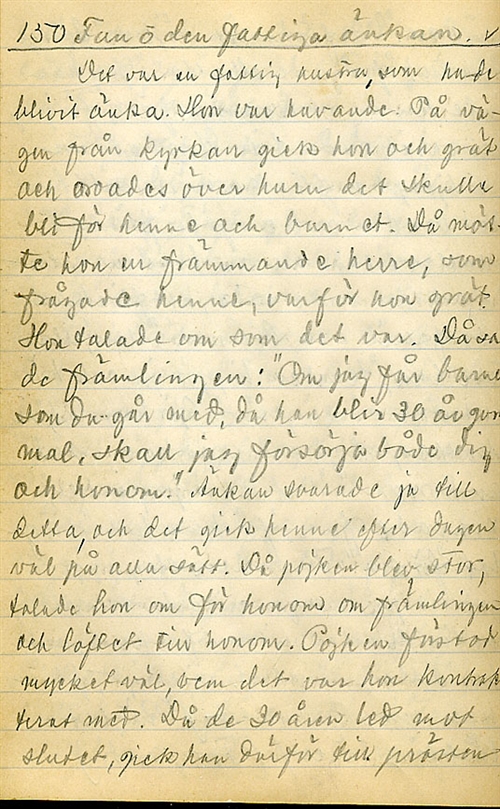 150 Fan o den fattiga änkan. v
Det var en fattig hustru, som hade
blivit änka. Hon var havande. På vä-
gen från kyrkan gick hon och grät
och oroades över huru det skulle
bli för henne och barnet. Då möt-
te hon en främmande herre, som
frågade henne, varför hon grät.
Hon talade om som det var. Då sa
de främlingen: "Om jag får barne
som du går med, då han blir 30 år gam
mal, skall jag försörja både dig
och honom." Änkan svarade ja till
detta, och det gick henne efter dagen
väl på alla sätt. Då pojken blev stor,
talade hon om för honom om främlingen
och löftet till honom. Pojken förstod
mycket väl, vem det var hon kontrak
terat med. Då de 30 åren led mot
slutet, gick han därför till prästen